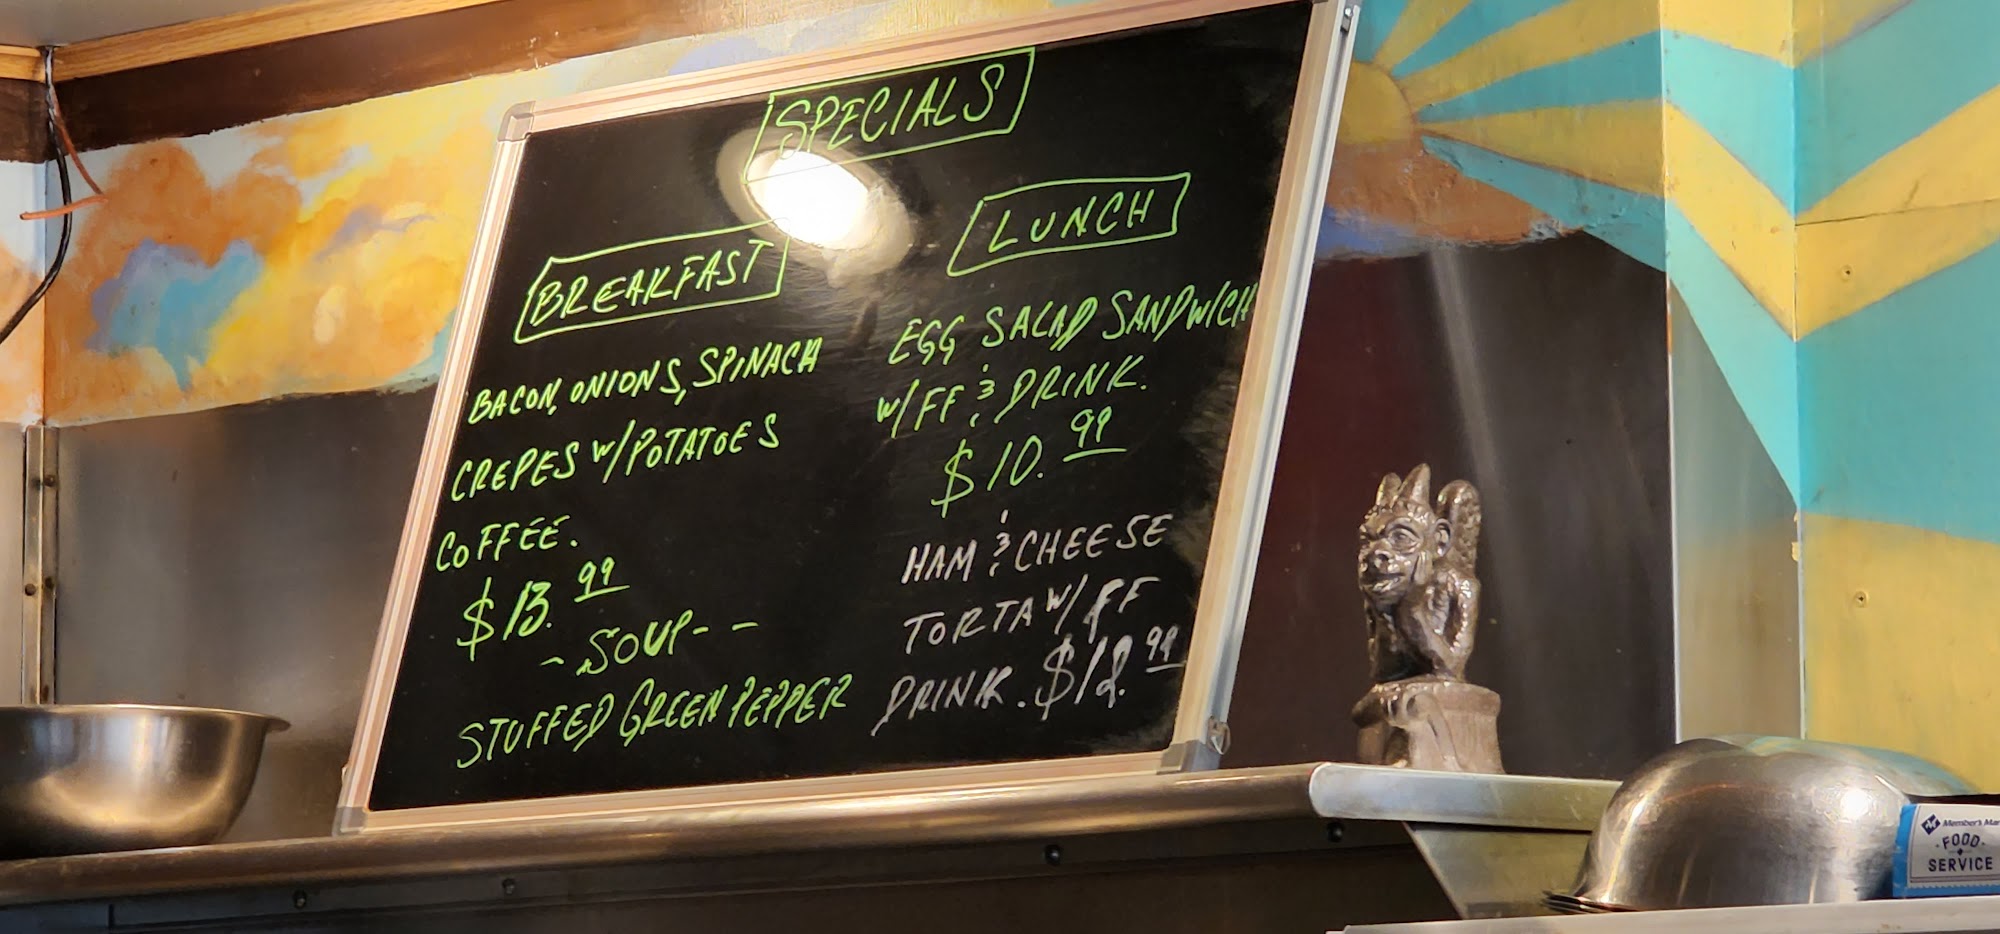 SPECIALS
BREAKFAST
BACON, ONIONS, SPINACH
CREPES W/POTATOES
COFFEE.
$13.99
- SOUP - -
STUFFED GREEN PEPPER
LUNCH
EGG SALAD SANDWICH
W/FF & DRINK.
$10.99
HAM & CHEESE
TORTA W/FF
DRINK. $12.99
Member's Mar
FOOD
SERVICE